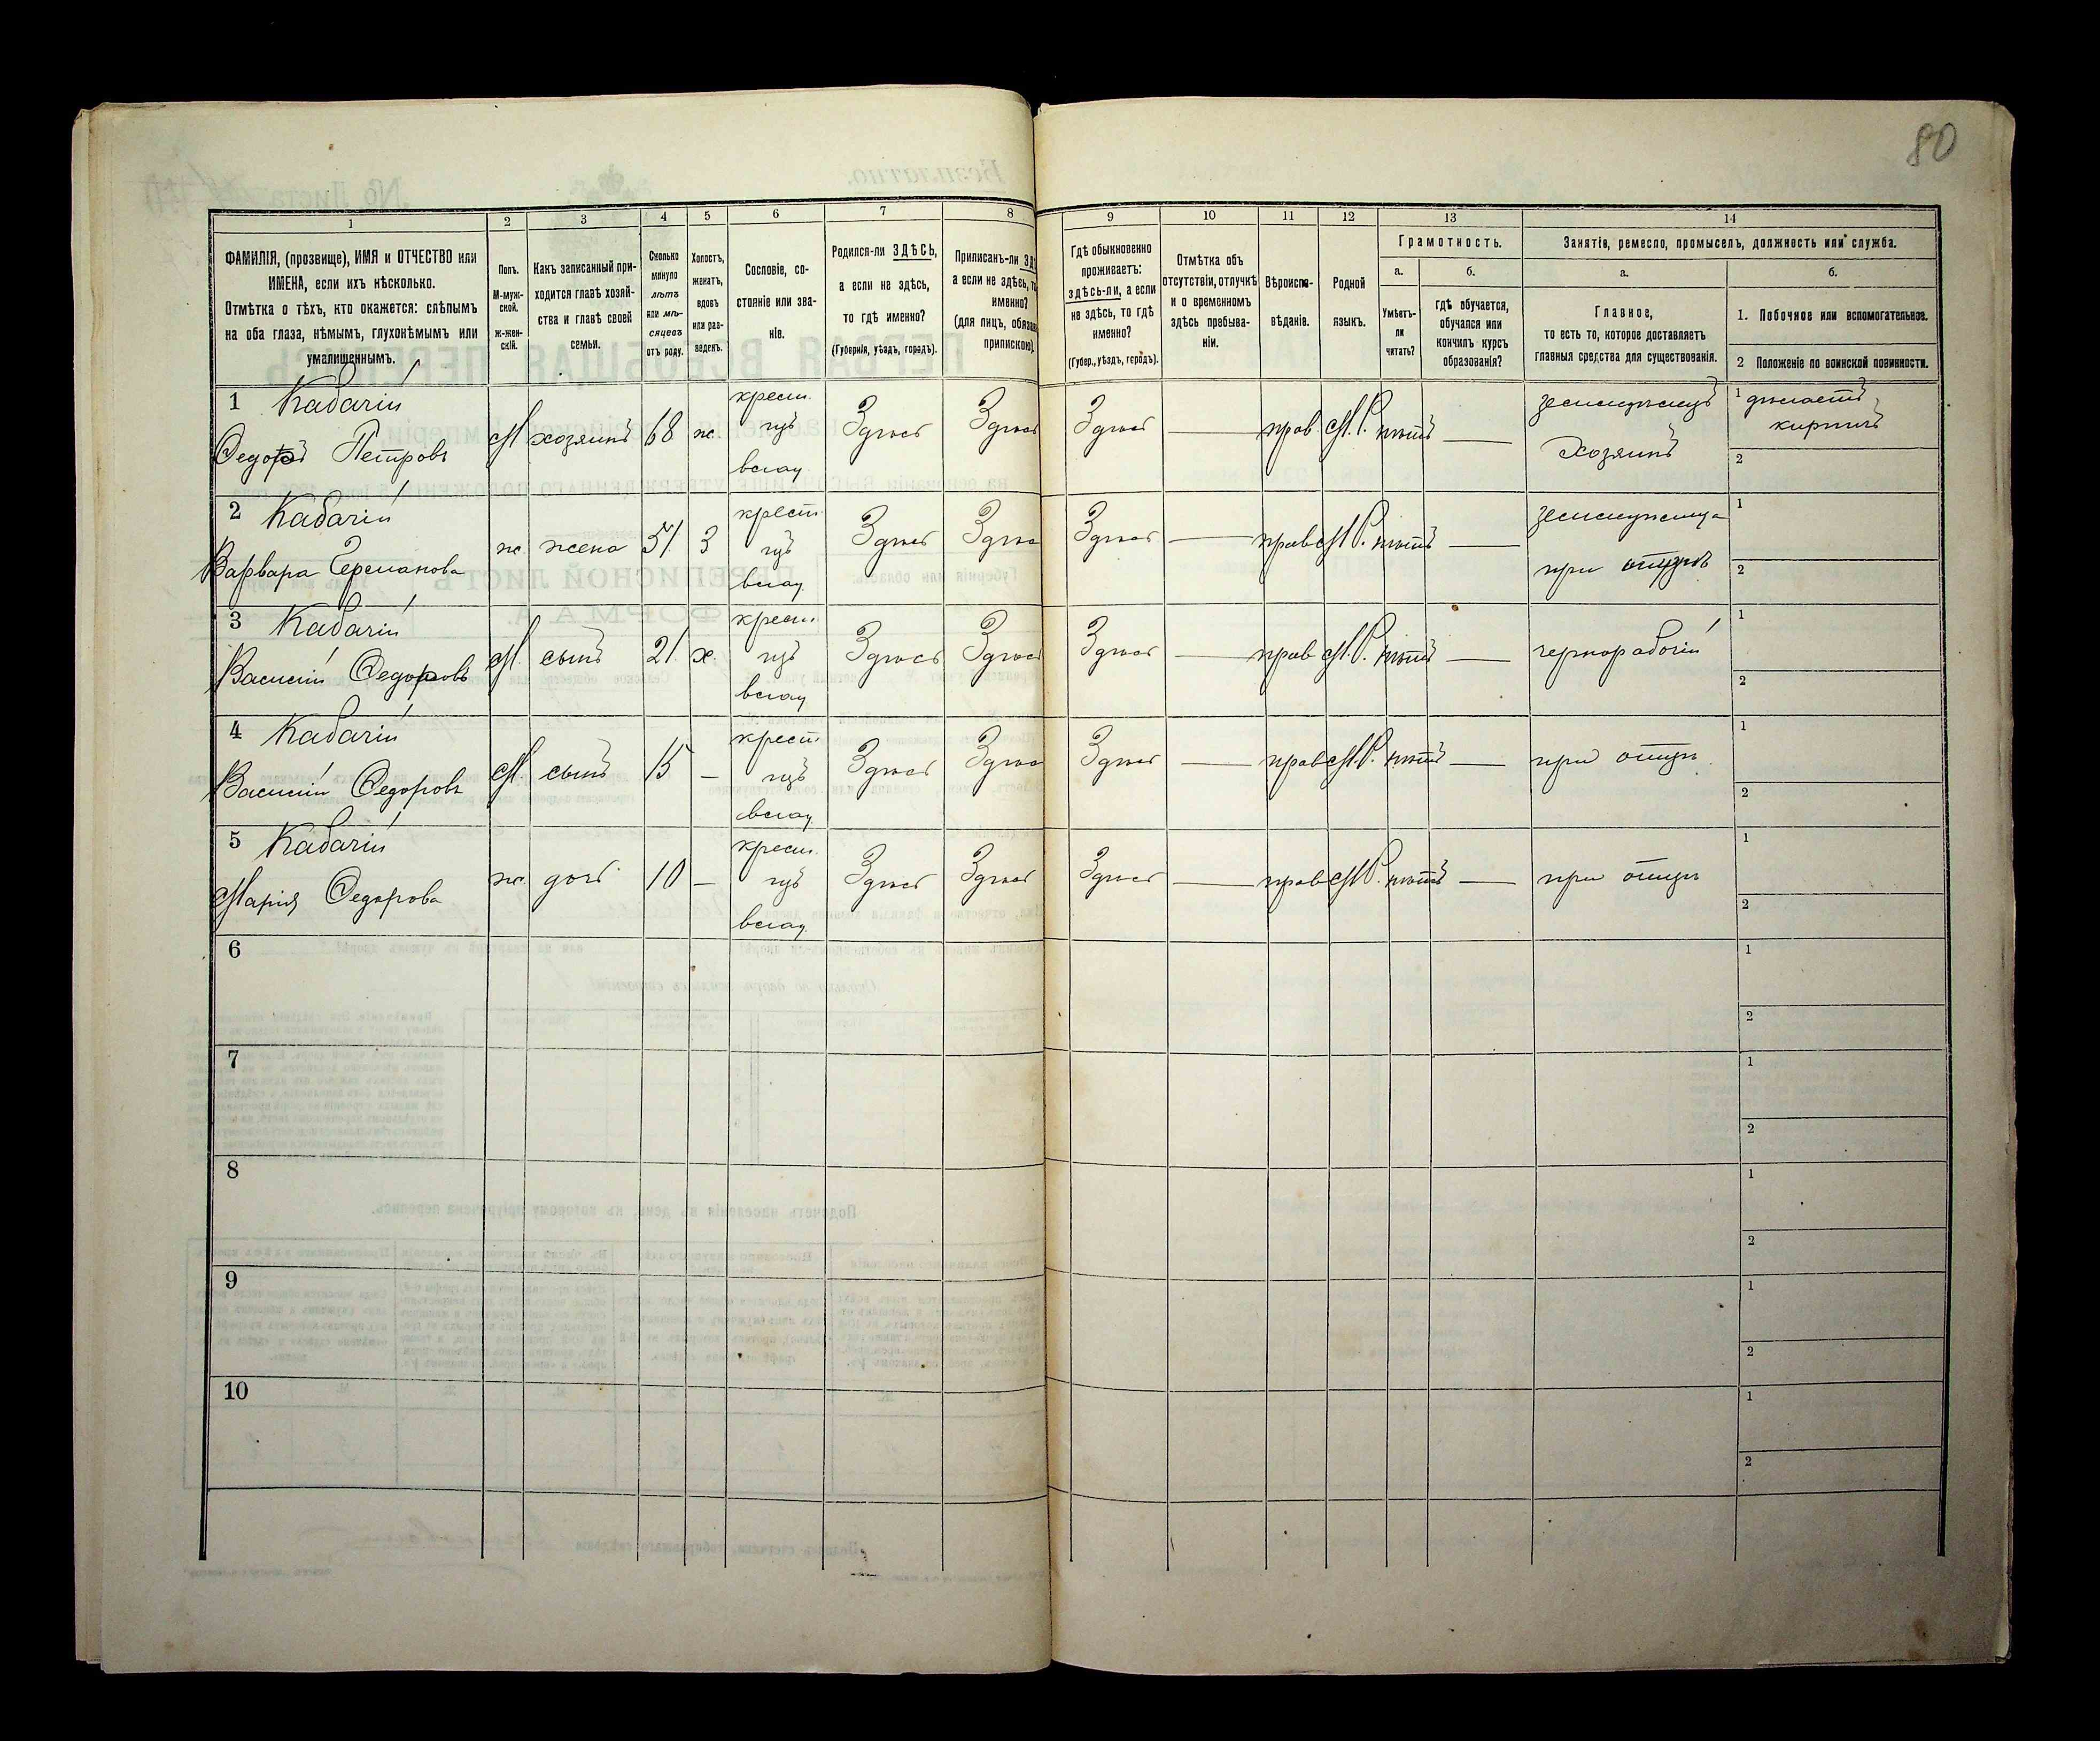 80
1 2 3 4 5 6 7 8 9 10 11 12 13 14
ФАМИЛІЯ, (прозвище), ИМЯ и ОТЧЕСТВО или
ИМЕНА, если ихъ нѣсколько.
Отмѣтка о тѣхъ, кто окажется: слѣпымъ
на оба глаза, нѣмымъ, глухонѣмымъ или
умалишеннымъ.
Полъ.
М-муж-
ской.
ж-жен-
скій.
Какъ записанный при-
ходится главѣ хозяй-
ства и главѣ своей
семьи.
Сколько
минуло
лѣтъ
или мѣ-
сяцевъ
отъ роду.
Холостъ,
женатъ,
вдовъ
или раз-
веденъ.
Сословіе, со-
стояніе или зва-
ніе.
Родился-ли ЗДѢСЬ,
а если не здѣсь,
то гдѣ именно?
(Губернія, уѣздъ, городъ).
Приписанъ-ли
а если не здѣсь,
именно?
(для лицъ,
припискою).
Гдѣ обыкновенно
проживаетъ:
здѣсь-ли, а если
не здѣсь, то гдѣ
именно?
(Губер., уѣздъ, городъ).
Отмѣтка объ
отсутствіи, отлучкѣ
и о временномъ
здѣсь пребыва-
ніи.
Вѣроиспо-
вѣданіе.
Родной
языкъ.
Грамотность.
а.
Умѣетъ-
ли
читать?
б.
гдѣ обучается,
обучался или
кончилъ курсъ
образованія?
Занятіе, ремесло, промыселъ, должность или служба.
а.
Главное,
то есть то, которое доставляетъ
главныя средства для существованія.
б.
1. Побочное или вспомогательное.
2 Положеніе по воинской повинности.
1 Кабачій
Ѳедоръ Петровъ
М хозяинъ 68 ж.
крест.
изъ
влад.
Здѣсь Здѣсь Здѣсь — прав. М.Р. нѣтъ —
земледѣлецъ
Хозяинъ
1 дѣлаетъ
кирпичъ
2
2 Кабачій
Варвара Германова
ж жена 51 З
крест.
изъ
влад.
Здѣсь Здѣсь Здѣсь — прав М.Р. нѣтъ —
при
1
2
3 Кабачій
Василій Ѳедоровъ
М. сынъ 21 х.
крест.
изъ
влад.
Здѣсь Здѣсь Здѣсь — прав М.Р. нѣтъ —
чернорабочій
1
2
4 Кабачій
Василій Ѳедоровъ
М. сынъ 15 —
крест.
изъ
влад.
Здѣсь Здѣсь Здѣсь — прав М.Р. нѣтъ —
при отцѣ
1
2
5 Кабачій
Марія Ѳедорова
ж. дочь 10 —
крест.
изъ
влад.
Здѣсь Здѣсь Здѣсь — прав М.Р. нѣтъ —
при отцѣ
1
2
6
1
2
7
1
2
8
1
2
9
1
2
10
1
2